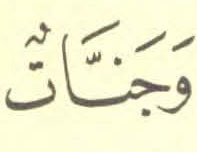 وَجَنَّاتٌ